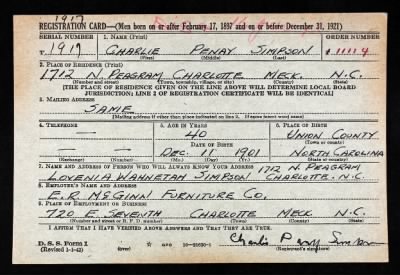 1917
REGISTRATION CARD—(Men born on or after February 17, 1897 and on or before December 31, 1921)
SERIAL NUMBER 1. NAME (Print) ORDER NUMBER
T 1917 CHARLIE PENAY SIMPSON 11114
(First) (Middle) (Last)
2. PLACE OF RESIDENCE (Print)
1712 N. PEAGRAM CHARLOTTE MECK. N.C.
(Number and street) (Town, township, village, or city) (County) (State)
[THE PLACE OF RESIDENCE GIVEN ON THE LINE ABOVE WILL DETERMINE LOCAL BOARD
JURISDICTION; LINE 2 OF REGISTRATION CERTIFICATE WILL BE IDENTICAL]
3. MAILING ADDRESS
SAME
[Mailing address if other than place indicated on line 2. If same insert word same]
4. TELEPHONE 5. AGE IN YEARS 6. PLACE OF BIRTH
— 40 UNION COUNTY
DATE OF BIRTH (Town or county)
— DEC. 1901 NORTH CAROLINA
(Exchange) (Number) (Mo.) (Day) (Yr.) (State or country)
7. NAME AND ADDRESS OF PERSON WHO WILL ALWAYS KNOW YOUR ADDRESS 1712 N. PEAGRAM
LOVENIA WAHNETAH SIMPSON CHARLOTTE, N.C.
8. EMPLOYER'S NAME AND ADDRESS
E.R. McGINN FURNITURE CO.
9. PLACE OF EMPLOYMENT OR BUSINESS
720 E. SEVENTH CHARLOTTE MECK N.C.
(Number and street or R. F. D. number) (Town) (County) (State)
I AFFIRM THAT I HAVE VERIFIED ABOVE ANSWERS AND THAT THEY ARE TRUE.
D. S. S. Form 1 Charlie Penay Simpson
(Revised 1-1-42) (over) 16-21630-1 (Registrant's signature)